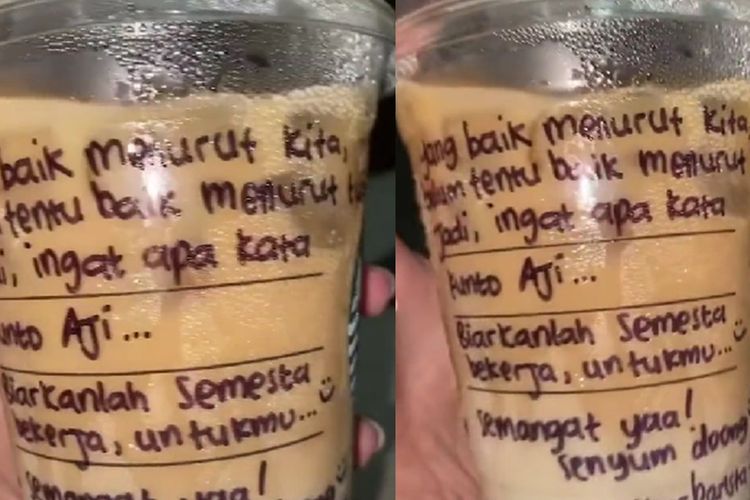 baik menurut kita,
tentu baik menurut
ingat apa kata
unto Aji...
Biarkanlah Semesta
bekerja, untukmu...
semangat yaa!
yang baik menurut kita
belum tentu baik menurut
Jadi, ingat apa kata
kunto Aji...
Biarkanlah Semesta
bekerja, untukmu...
semangat yaa!
senyum doong
barista